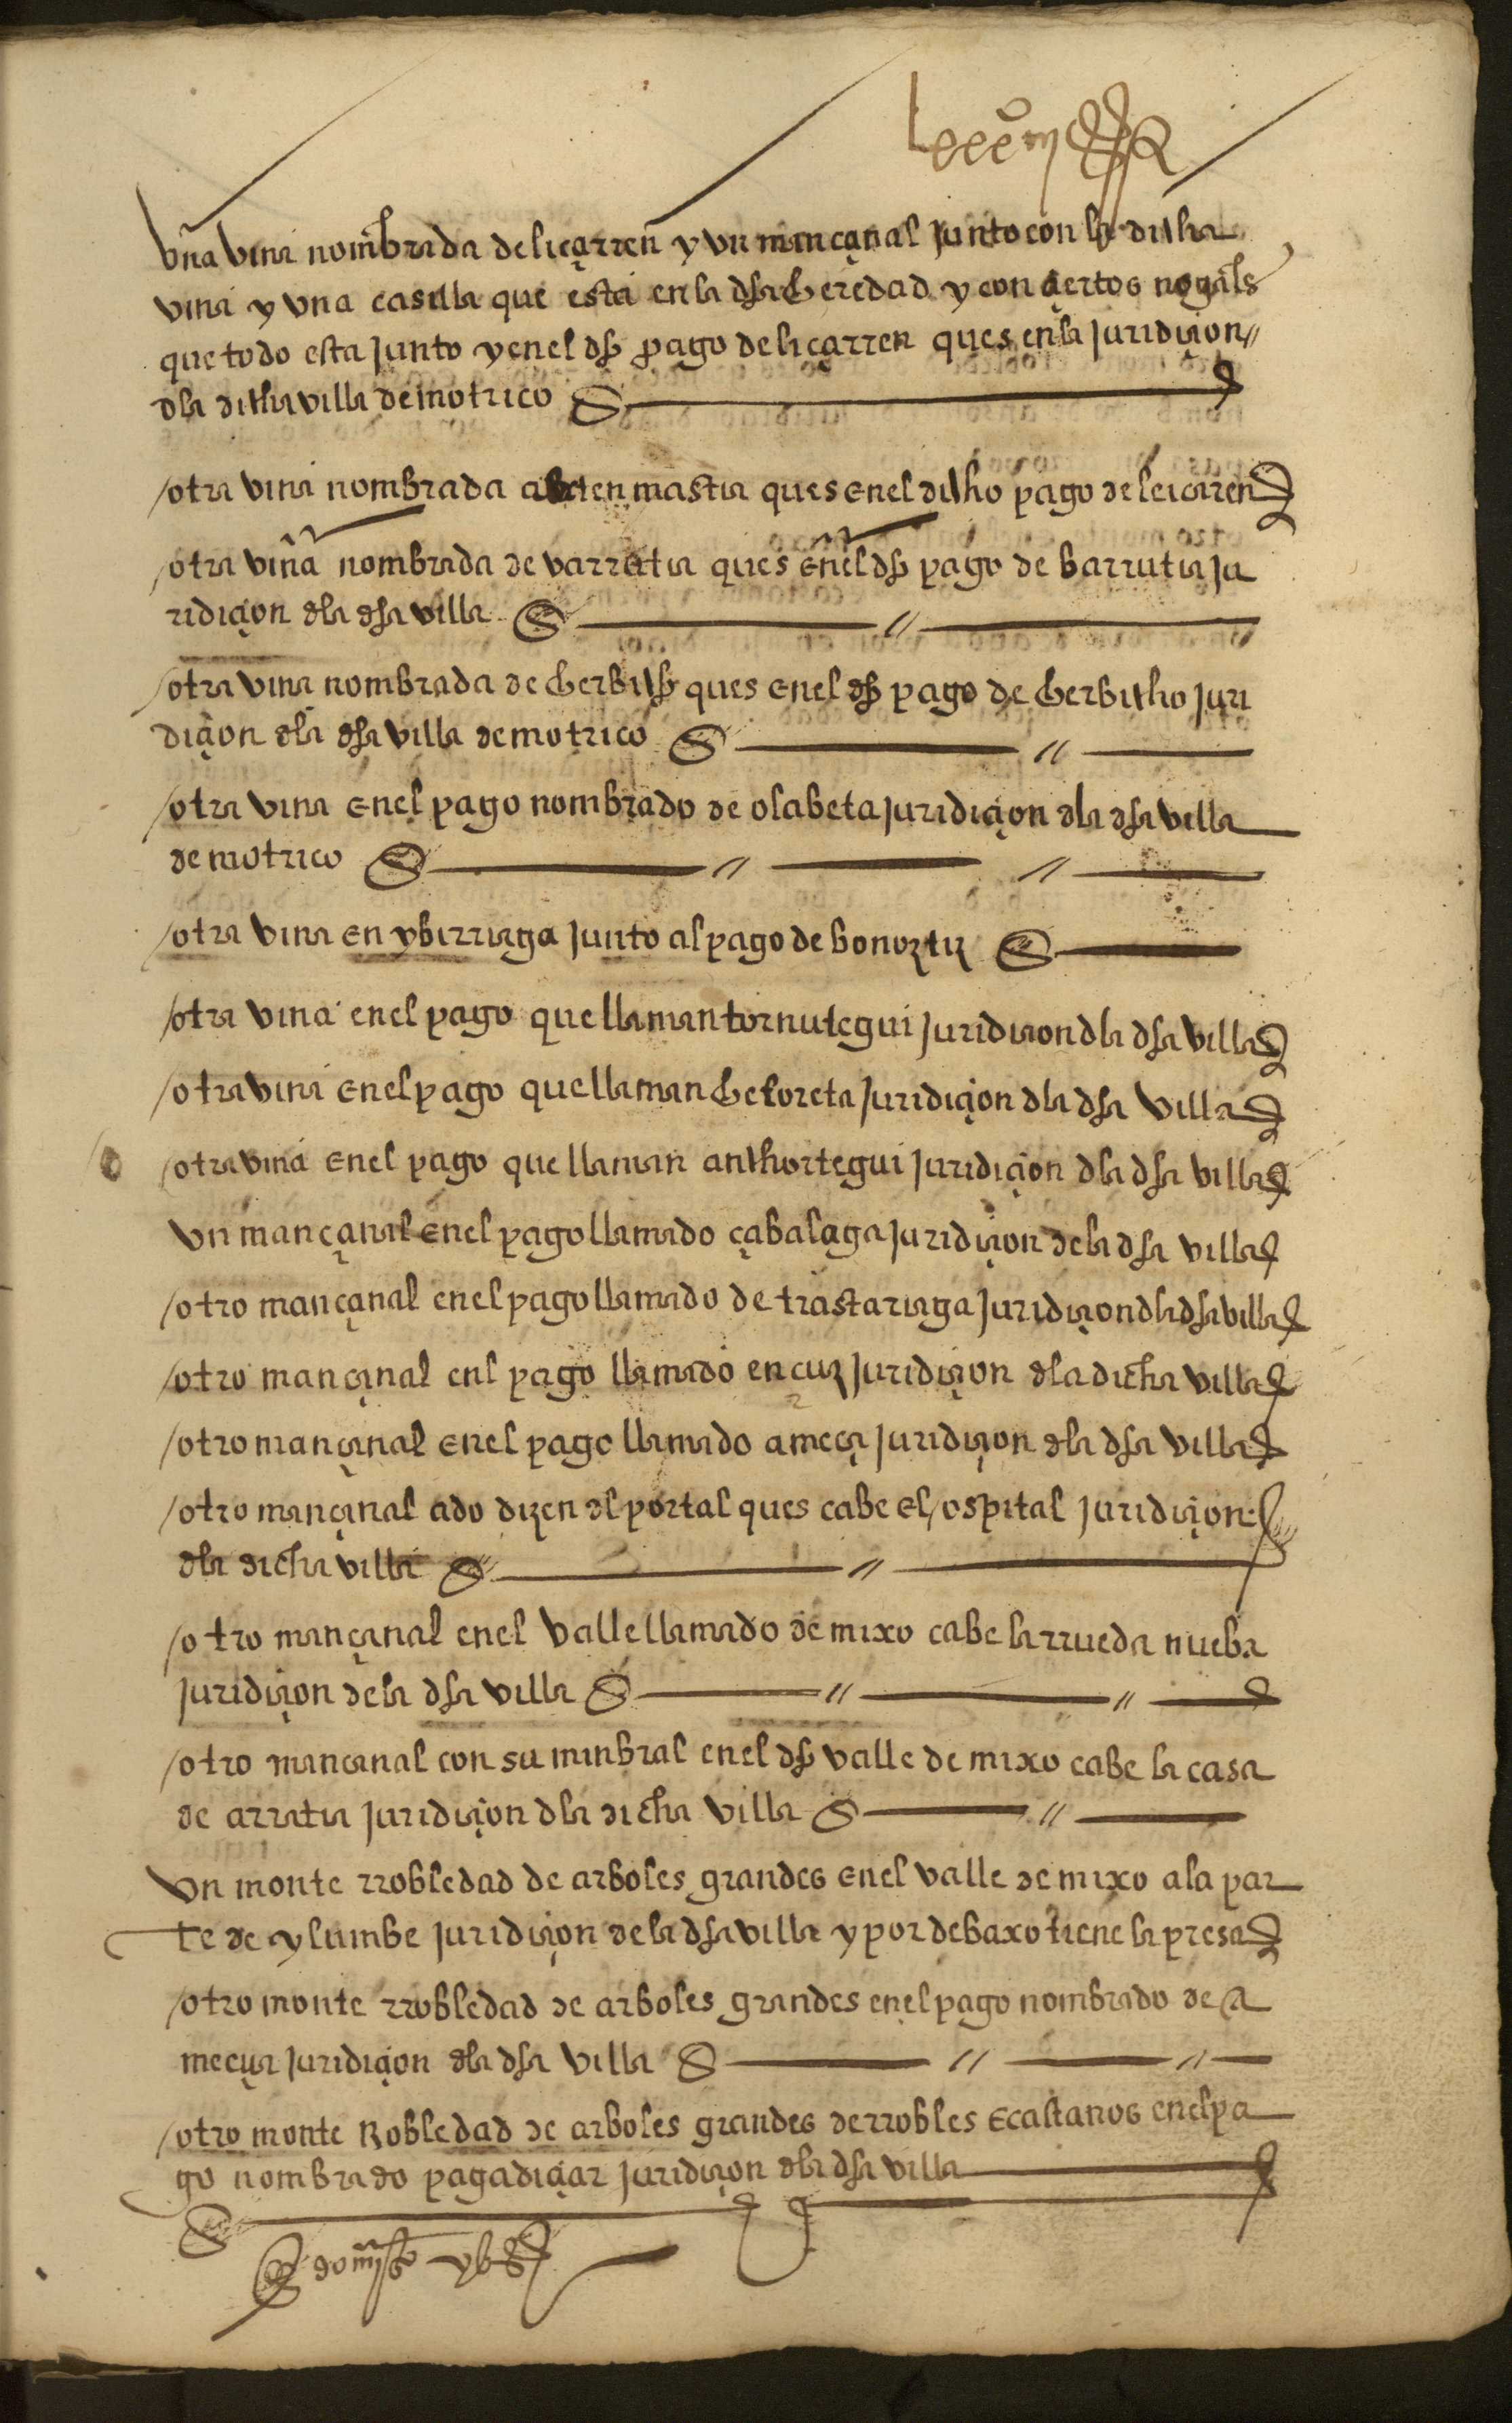 vña vina nombrada de liçarren y vn mançanal junto con la dicha
vina y vna casilla que esta en la dha heredad y con çiertos nogales
que todo esta junto y en el dho pago de liçarren ques en la juridiçion
dla dicha villa de motrico
otra vina nombrada ques en el dicho pago de leiçaren
otra viña nombrada de varrutia ques en el dho pago de barrutia ju
ridiçion dla dha villa
otra vina nombrada de herbicho ques en el dho pago de herbicho juri
diçion dla dha villa de motrico
otra vina en el pago nombrado de olabeta juridiçion dla dha villa
de motrico
otra vina en ybirriaga junto al pago de bonoztiz
otra vina en el pago que llaman tornutegui juridiçion dla dha villa
otra vina en el pago que llaman heloreta juridiçion dla dha villa
otra vina en el pago que llaman anchortegui juridiçion dla dha villa
vn mançanal en el pago llamado çabalaga juridiçion de la dha villa
otro mançanal en el pago llamado de trastariaga juridiçion dla dha villa
otro mançanal enl pago llamado encuz juridiçion dla dicha villa
otro mançanal en el pago llamado ameça juridiçion dla dha villa
otro mançanal ado dizen el portal ques cabe el ospital juridiçion
dla dicha villa
otro mançanal en el valle llamado de mixo cabe la rrueda nueba
juridiçion de la dha villa
otro mançanal con su minbral en el dho valle de mixo cabe la casa
de arratia juridiçion dla dicha villa
vn monte rrobledad de arboles grandes en el valle de mixo a la par
te de ylumbe juridiçion de la dha villa y por debaxo tiene la presa
otro monte rrobledad de arboles grandes en el pago nombrado de a
meçua juridiçion dla dha villa
otro monte Robledad de arboles grandes de rrobles e castanos en el pa
go nombrado pagadiçar juridiçion dla dha villa